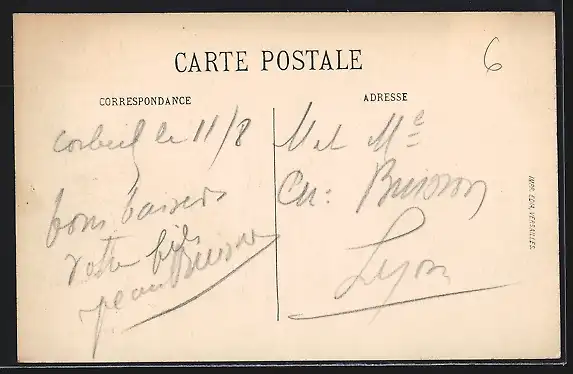 CARTE POSTALE
6
CORRESPONDANCE
ADRESSE
Corbeil le 11/8
bons baisers
votre fils
Jean Buisson
M et Me
Ch: Buisson
Lyon
IMP. EDIA. VERSAILLES.